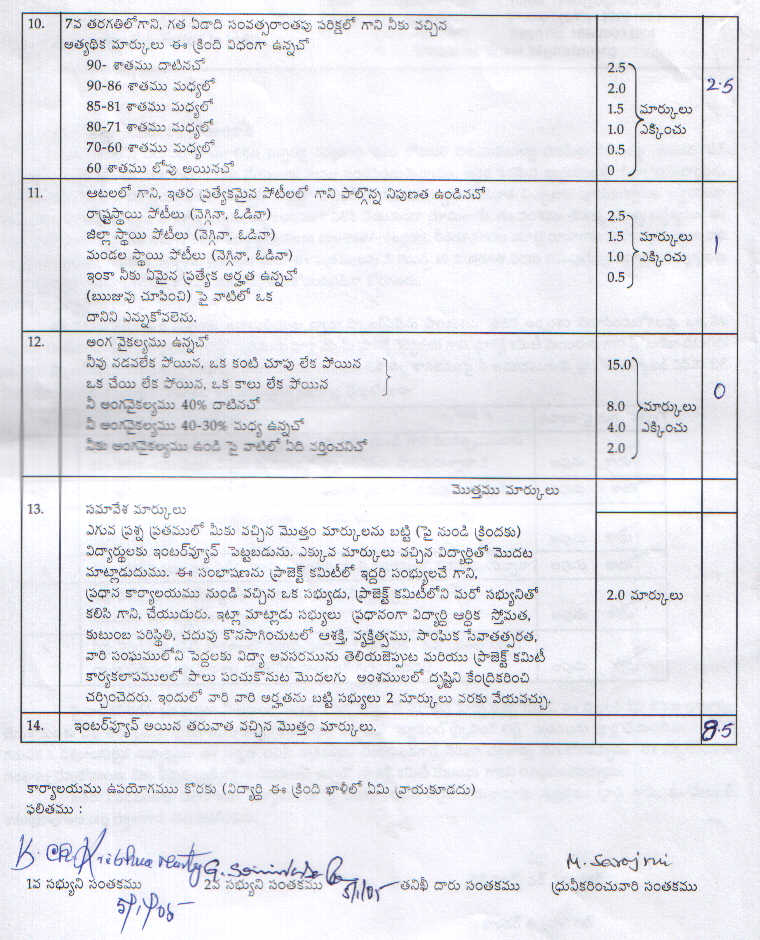 10. 7వ తరగతిలోగాని, గత ఏడాది సంవత్సరాంతపు పరిక్షలో గాని నీకు వచ్చిన
అత్యధిక మార్కులు ఈ క్రింది విధంగా ఉన్నచో
90- శాతము దాటినచో 2.5
90-86 శాతము మధ్యలో 2.0 2.5
85-81 శాతము మధ్యలో 1.5 మార్కులు
80-71 శాతము మధ్యలో 1.0 ఎక్కించు
70-60 శాతము మధ్యలో 0.5
60 శాతము లోపు అయినచో 0
11. ఆటలలో గాని, ఇతర ప్రత్యేకమైన పోటీలలో గాని పాల్గొన్న నిపుణత ఉండినచో
రాష్ట్రస్థాయి పోటీలు (నెగ్గినా, ఓడినా) 2.5
జిల్లా స్థాయి పోటీలు (నెగ్గినా, ఓడినా) 1.5 మార్కులు 1
మండల స్థాయి పోటీలు (నెగ్గినా, ఓడినా) 1.0 ఎక్కించు
ఇంకా నీకు ఏమైన ప్రత్యేక అర్హత ఉన్నచో 0.5
(ఋజువు చూపించి) పై వాటిలో ఒక
దానిని ఎన్నుకోవలెను.
12. అంగ వైకల్యము ఉన్నచో
నీవు నడవలేక పోయిన, ఒక కంటి చూపు లేక పోయిన 15.0
ఒక చేయి లేక పోయిన, ఒక కాలు లేక పోయిన 0
నీ అంగవైకల్యము 40% దాటినచో 8.0 మార్కులు
నీ అంగవైకల్యము 40-30% మధ్య ఉన్నచో 4.0 ఎక్కించు
నీకు అంగవైకల్యము ఉండి పై వాటిలో ఏది వర్తించనిచో 2.0
మొత్తము మార్కులు
13. సమావేశ మార్కులు
ఎగువ ప్రశ్న ప్రతములో మీకు వచ్చిన మొత్తం మార్కులను బట్టి (పై నుండి క్రిందకు)
విద్యార్థులకు ఇంటర్వ్యూవ్ పెట్టబడును. ఎక్కువ మార్కులు వచ్చిన విద్యార్థితో మొదట
మాట్లాడుదుము. ఈ సంభాషణను ప్రాజెక్ట్ కమిటీలో ఇద్దరి సంభ్యులచే గాని,
ప్రధాన కార్యాలయము నుండి వచ్చిన ఒక సభ్యుడు, ప్రాజెక్ట్ కమిటీలోని మరో సభ్యునితో 2.0 మార్కులు
కలిసి గాని, చేయుదురు. ఇట్లా మాట్లాడు సభ్యులు ప్రధానంగా విద్యార్థి ఆర్థిక స్తోమత,
కుటుంబ పరిస్థితి, చదువు కొనసాగించుటలో ఆశక్తి, వ్యక్తిత్వము, సాంఘిక సేవాతత్పరత,
వారి సంఘములోని పెద్దలకు విద్యా అవసరమును తెలియజెప్పుట మరియు ప్రాజెక్ట్ కమిటీ
కార్యకలాపములలో పాలు పంచుకొనుట మొదలగు అంశములలో దృష్టిని కేంద్రికరించి
చర్చించెదరు. ఇందులో వారి వారి అర్హతను బట్టి సభ్యులు 2 మార్కులు వరకు వేయవచ్చు.
14. ఇంటర్వ్యూవ్ అయిన తరువాత వచ్చిన మొత్తం మార్కులు. 8.5
కార్యాలయము ఉపయోగముు కొరకు (విద్యార్థి ఈ క్రింది ఖాళీలో ఏమి వ్రాయకూడదు)
ఫలితము :
M. Sarojni
1వ సభ్యుని సంతకము 2వ సభ్యుని సంతకము 5/1/05 తనిఖీ దారు సంతకము ధ్రువీకరించువారి సంతకము
5/1/05